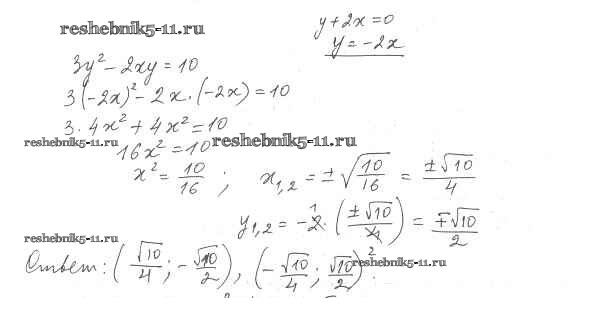 y + 2x = 0
reshebnik5-11.ru
y = -2x
3y² - 2xy = 10
3(-2x)² - 2x · (-2x) = 10
3 · 4x² + 4x² = 10
reshebnik5-11.ru
16x² = 10
reshebnik5-11.ru
x² = 10/16 ; x₁,₂ = ±√(10/16) = ±√10/4
y₁,₂ = -2 · (±√10/4) = ∓√10/2
reshebnik5-11.ru
Ответ: (√10/4 ; -√10/2), (-√10/4 ; √10/2)
reshebnik5-11.ru